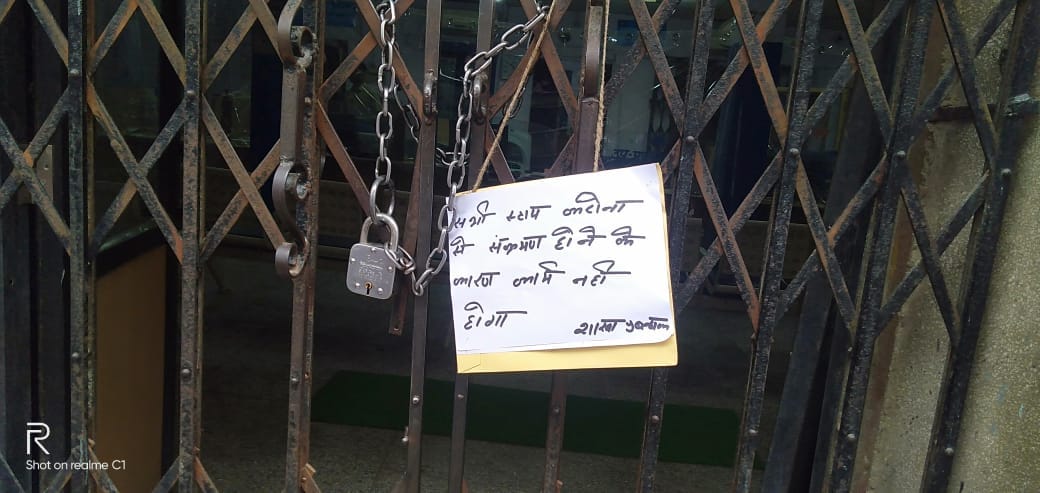 सभी स्टाफ करोना
से संक्रमण होने के
कारण कार्य नही
होगा
शाखा प्रबन्धक
R
Shot on realme C1